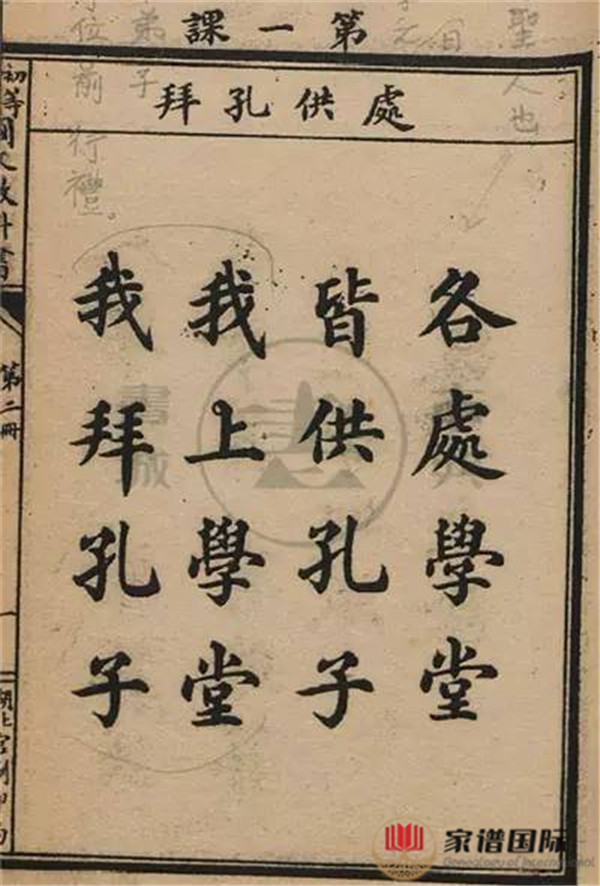 第一課
處供孔拜
各處學堂
皆供孔子
我上學堂
我拜孔子
初等國文教科書
第二冊
一
聖人也
弟子
位前行禮。
書城
家谱国际
Genealogy of International